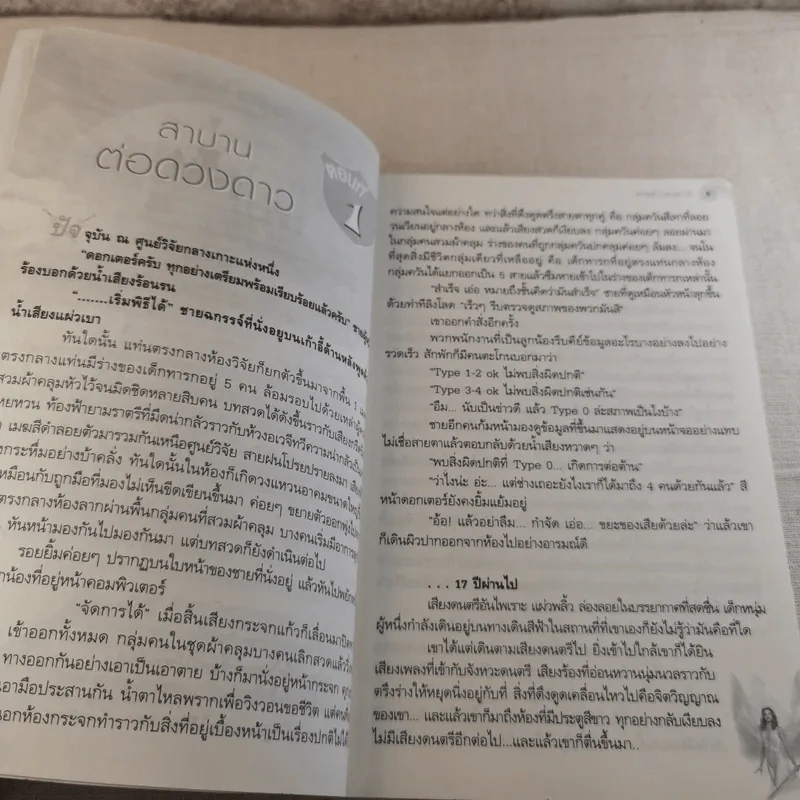 สาบาน
ต่อดวงดาว
ตอนที่
1
ปัจจุบัน ณ ศูนย์วิจัยกลางเกาะแห่งหนึ่ง
"ดอกเตอร์ครับ ทุกอย่างเตรียมพร้อมเรียบร้อยแล้วครับ"
ร้องบอกด้วยน้ำเสียงร้อนรน
".......เริ่มพิธีได้" ชายฉกรรจ์ที่นั่งอยู่บนเก้าอี้ด้านหลังพูดด้วย
น้ำเสียงแผ่วเบา
ทันใดนั้น แท่นตรงกลางห้องวิจัยก็ยกตัวขึ้นมาจากพื้น
ตรงกลางแท่นมีร่างของเด็กทารกอยู่ 5 คน ล้อมรอบไปด้วยเหล่า
สวมผ้าคลุมหัวไว้จนมิดชิดหลายสิบคน บทสวดได้ดังขึ้นราวกับเสียง
หยหวน ท้องฟ้ายามราตรีที่มืดน่ากลัวราวกับห้วงอเวจีทวีความน่ากลัว
เมฆสีดำลอยตัวมารวมกันเหนือศูนย์วิจัย สายฝนโปรยปรายลงมา
กระหึ่มอย่างบ้าคลั่ง ทันใดนั้นในห้องก็เกิดวงแหวนอาคมขนาดใหญ่
เหมือนกับถูกมือที่มองไม่เห็นขีดเขียนขึ้นมา ค่อยๆ ขยายตัวออก
ตรงกลางห้องลากผ่านพื้นกลุ่มคนที่สวมผ้าคลุม บางคนเริ่มมีอาการ
หันหน้ามองกันไปมองกันมา แต่บทสวดก็ยังดำเนินต่อไป
รอยยิ้มค่อยๆ ปรากฏบนใบหน้าของชายที่นั่งอยู่ แล้วหันไป
กน้องที่อยู่หน้าคอมพิวเตอร์
"จัดการได้" เมื่อสิ้นเสียงกระจกแก้วก็เลื่อนมาปิด
เข้าออกทั้งหมด กลุ่มคนในชุดผ้าคลุมบางคนเลิกสวดแล้ว
ทางออกกันอย่างเอาเป็นเอาตาย บ้างก็มานั่งอยู่หน้ากระจก
เอามือประสานกัน น้ำตาไหลพรากเพื่อวิงวอนขอชีวิต แต่คน
นอกห้องกระจกทำราวกับสิ่งที่อยู่เบื้องหน้าเป็นเรื่องปกติไม่ได้
ความสนใจแต่อย่างใด ทว่าสิ่งที่ดึงดูดตรึงสายตาทุกคู่ คือ กลุ่มควันสีเทาที่ลอย
วนเวียนอยู่กลางห้อง และแล้วเสียงสวดก็เงียบลง กลุ่มควันค่อยๆ ลอยผ่านมา
ในกลุ่มคนสวมผ้าคลุม ร่างของคนที่ถูกกลุ่มควันปกคลุมค่อยๆ ล้มลง... จนใน
ที่สุดสิ่งมีชีวิตกลุ่มเดียวที่เหลืออยู่ คือ เด็กทารกที่อยู่ตรงแท่นกลางห้อง
กลุ่มควันได้แยกออกเป็น 5 สายแล้วซึมหายเข้าไปในร่างของเด็กทารกเหล่านั้น
"สำเร็จ เอ่อ หมายถึงขั้นคิดว่ามันสำเร็จ" ชายที่ดูเหมือนหัวหน้าลุกขึ้น
ด้วยท่าทีลิงโลด "เร็วๆ รีบตรวจดูสภาพของพวกมันสิ"
เขาออกคำสั่งอีกครั้ง
พวกพนักงานที่เป็นลูกน้องรีบคีย์ข้อมูลอะไรบางอย่างลงไปอย่าง
รวดเร็ว สักพักก็มีคนตะโกนบอกมาว่า
"Type 1-2 ok ไม่พบสิ่งผิดปกติ"
"Type 3-4 ok ไม่พบสิ่งผิดปกติเช่นกัน"
"อืม... นับเป็นข่าวดี แล้ว Type 0 ล่ะสภาพเป็นไงบ้าง"
ชายอีกคนก้มหน้ามองดูข้อมูลที่ขึ้นมาแสดงอยู่บนหน้าจออย่างแทบ
ไม่เชื่อสายตาแล้วตอบกลับด้วยน้ำเสียงหวาดๆ ว่า
"พบสิ่งผิดปกติที่ Type 0... เกิดการต่อต้าน"
"ว่าไงน่ะ อ่ะ... แต่ช่างเถอะยังไงเราก็ได้มาถึง 4 คนด้วยกันแล้ว" สี
หน้าดอกเตอร์ยังคงยิ้มแย้มอยู่
"อ้อ! แล้วอย่าลืม... กำจัด เอ่อ... ขยะของเสียด้วยล่ะ" ว่าแล้วเขา
ก็เดินผิวปากออกจากห้องไปอย่างอารมณ์ดี
. . . 17 ปีผ่านไป
เสียงดนตรีอันไพเราะ แผ่วพลิ้ว ล่องลอยในบรรยากาศที่สดชื่น เด็กหนุ่ม
ผู้หนึ่งกำลังเดินอยู่บนทางเดินสีฟ้าในสถานที่ที่เขาเองก็ยังไม่รู้ว่ามันคือที่ใด
เขาได้แต่เดินตามเสียงดนตรีไป ยิ่งเข้าไปใกล้เขาก็ได้ยิน
เสียงเพลงที่เข้ากับจังหวะดนตรี เสียงร้องที่อ่อนหวานนุ่มนวลราวกับ
ตรึงร่างให้หยุดนิ่งอยู่กับที่ สิ่งที่ดึงดูดเคลื่อนไหวไปคือจิตวิญญาณ
ของเขา... และแล้วเขาก็มาถึงห้องที่มีประตูสีขาว ทุกอย่างกลับเงียบลง
ไม่มีเสียงดนตรีอีกต่อไป...และแล้วเขาก็ตื่นขึ้นมา..